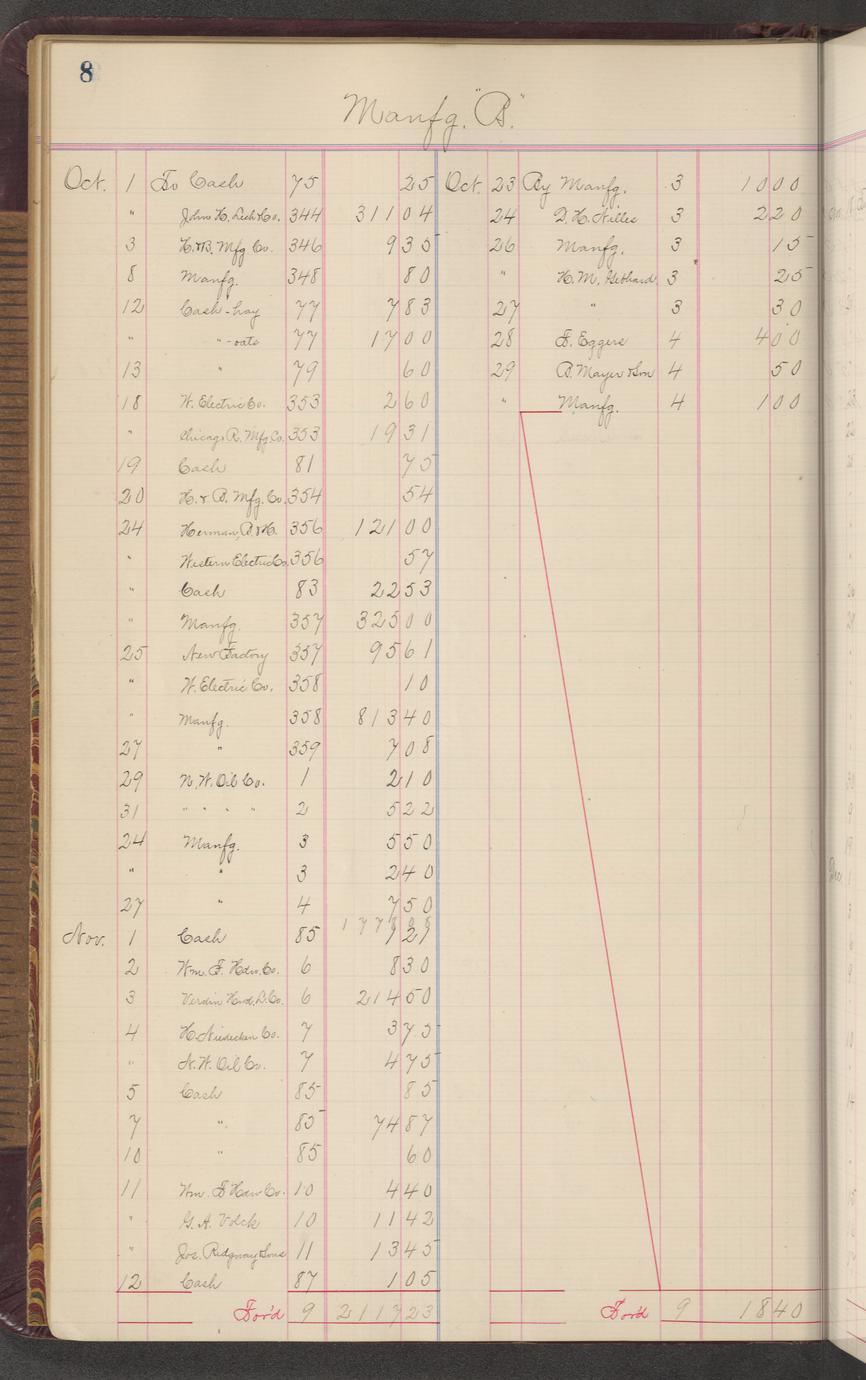 8
Manfg. "B."
Oct. 1 To Cash 75 25
" John H. Lesh & Co. 344 311 04
3 H. & B. Mfg Co. 346 9 35
8 Manfg. 348 80
12 Cash - hay 77 7 83
" " - oats 77 17 00
13 " 79 60
18 W. Electric Co. 353 2 60
" Chicago R. Mfg Co. 353 19 31
19 Cash 81 75
20 H. & B. Mfg. Co. 354 54
24 Herman, B. & H. 356 121 00
" Western Electric Co. 356 57
" Cash 83 22 53
" Manfg. 357 325 00
25 New Factory 357 95 61
" W. Electric Co. 358 10
" Manfg. 358 813 40
27 " 359 7 08
29 N. W. Oil Co. 1 2 10
31 " " " " 2 5 22
24 Manfg. 3 5 50
" " 3 2 40
27 " 4 7 50
Nov. 1 Cash 85 7 27
2 Wm. F. Hdw. Co. 6 8 30
3 Verdin Hwd. L. Co. 6 214 50
4 H. Niedecken Co. 7 3 75
" N. W. Oil Co. 7 4 75
5 Cash 85 85
7 " 85 74 87
10 " 85 60
11 Wm. F Hdw Co. 10 4 40
" G. A. Volck 10 11 42
" Jos. Ridgway & Sons 11 13 45
12 Cash 87 1 05
For'd 9 2117 23
Oct. 23 By Manfg. 3 10 00
24 D. H. Hilles 3 2 20
26 Manfg. 3 15
" H. M. Gebhard 3 25
27 " 3 30
28 F. Eggers 4 4 00
29 B. Mayer & Son 4 50
" Manfg. 4 1 00
For'd 9 18 40